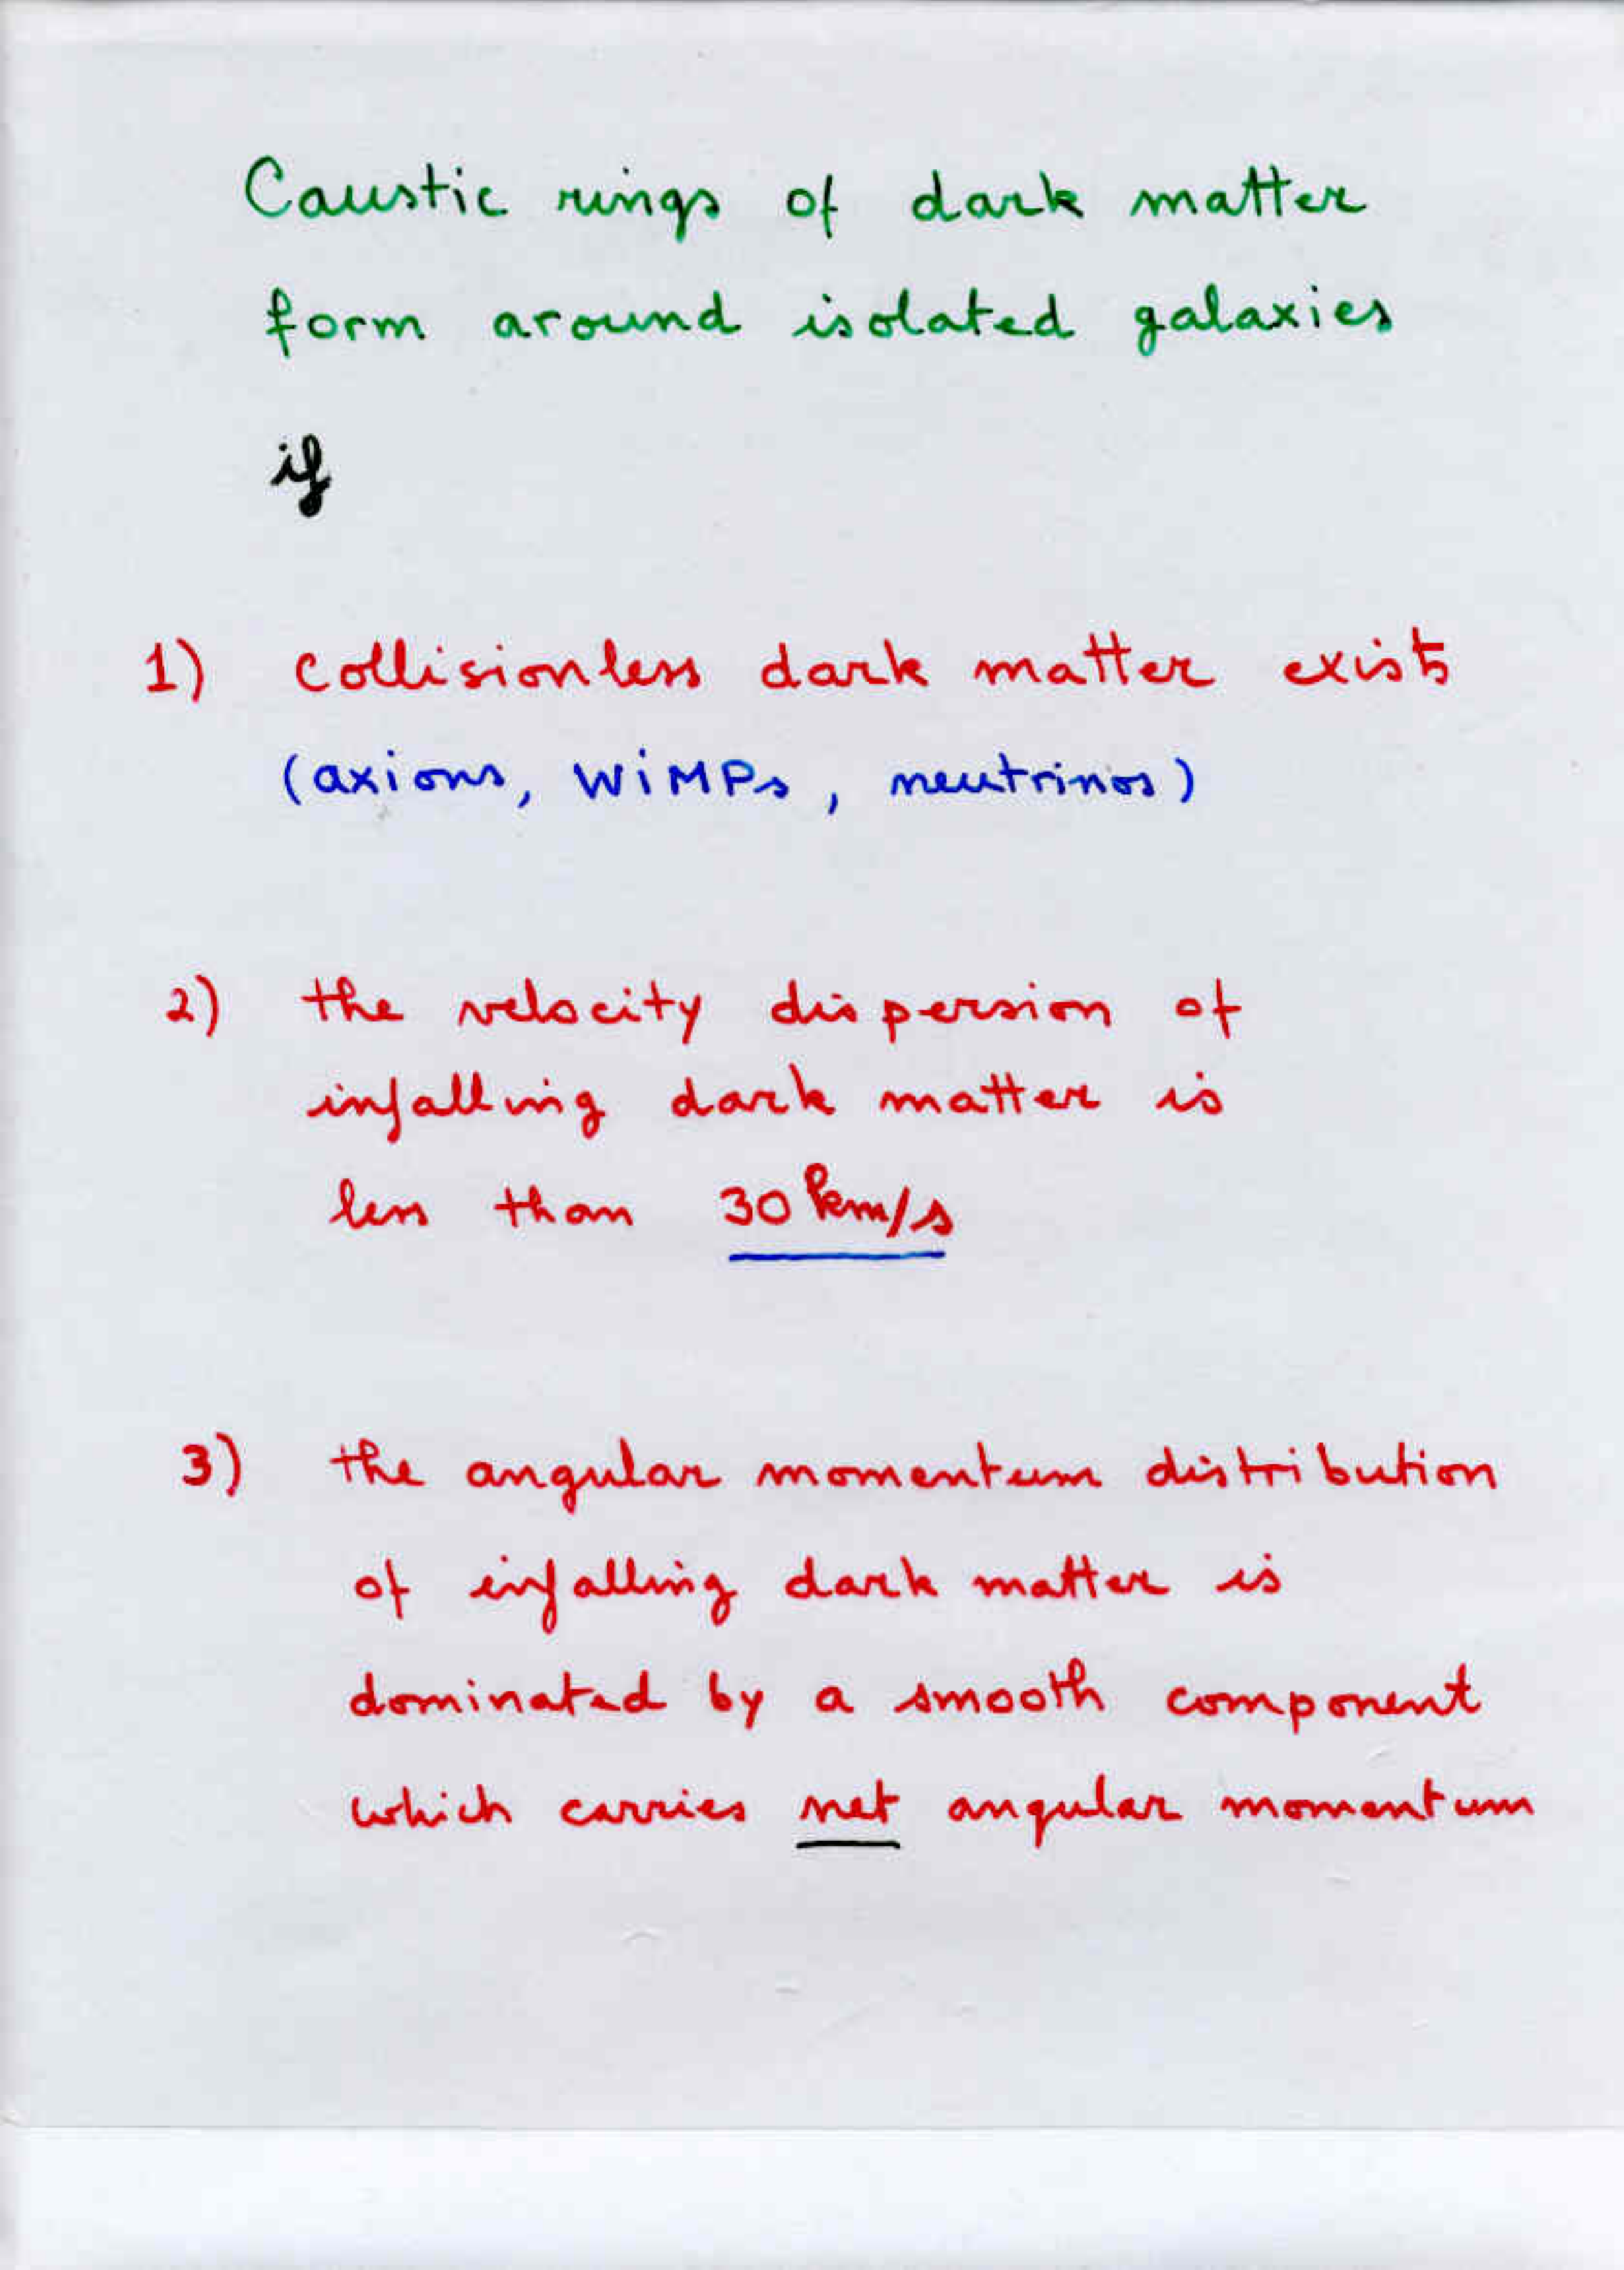 Caustic rings of dark matter
form around isolated galaxies
if
1) collisionless dark matter exists
(axions, WiMPs, neutrinos)
2) the velocity dispersion of
infalling dark matter is
less than 30 km/s
3) the angular momentum distribution
of infalling dark matter is
dominated by a smooth component
which carries net angular momentum